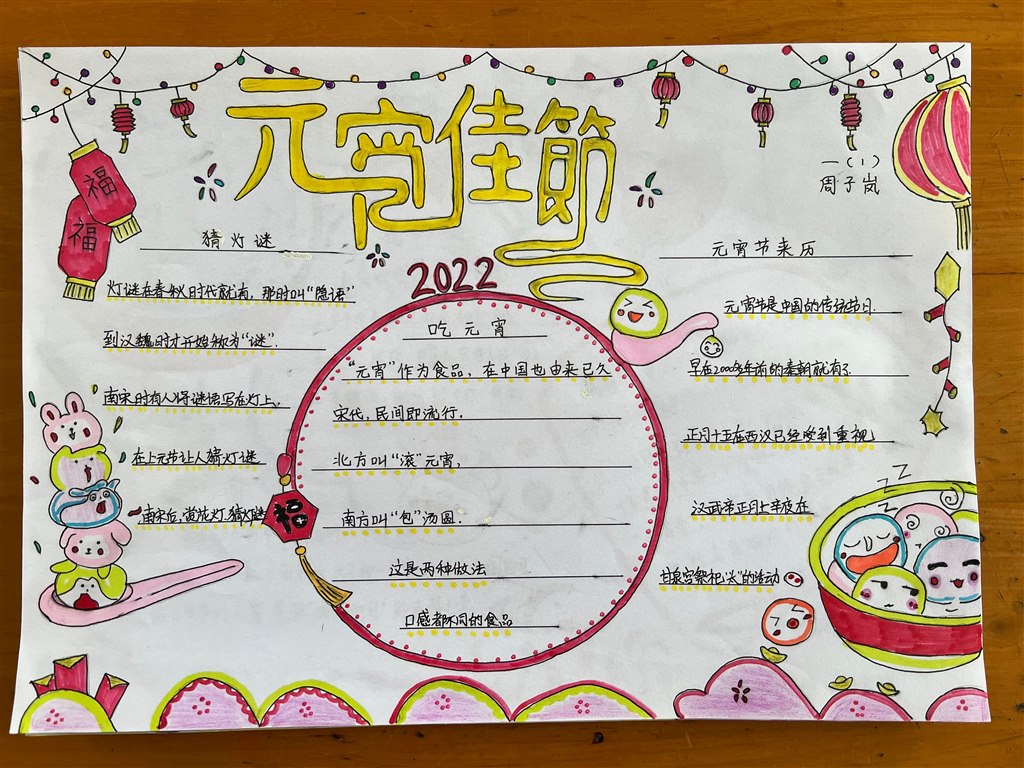 元宵佳節
一(1)
周子岚
福
福
猜灯谜
灯谜在春秋时代就有，那时叫“隐语”
到汉魏时才开始称为“谜”.
南宋时有人将谜语写在灯上，
在上元节让人猜灯谜
南宋后，赏花灯.猜灯谜
2022
吃元宵
“元宵”作为食品，在中国也由来已久
宋代，民间即流行.
北方叫“滚”元宵，
南方叫“包”汤圆.
这是两种做法
口感都不同的食品
福
元宵节来历
元宵节是中国的传统节日.
早在2000多年前的秦朝就有了
正月十五在西汉已经受到重视
汉武帝正月上辛夜在
甘泉宫祭祀“太”的活动
ZZZ